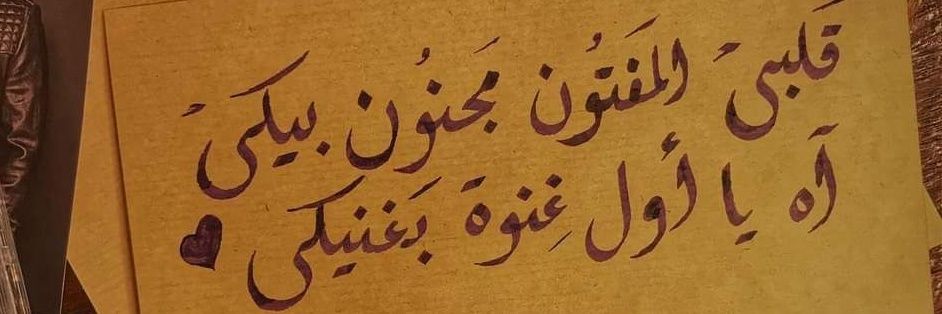 قَلبىْ المَفتُون مَجنُون بيكىْ
آه يا أول غِنوة بَغنيكى